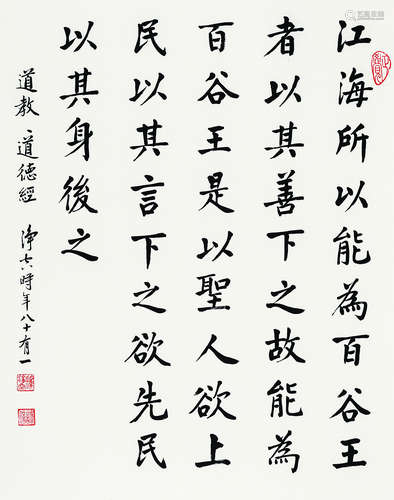 江海所以能為百谷王
者以其善下之故能為
百谷王是以聖人欲上
民以其言下之欲先民
以其身後之
道教、道德經 淨空時年八十有一